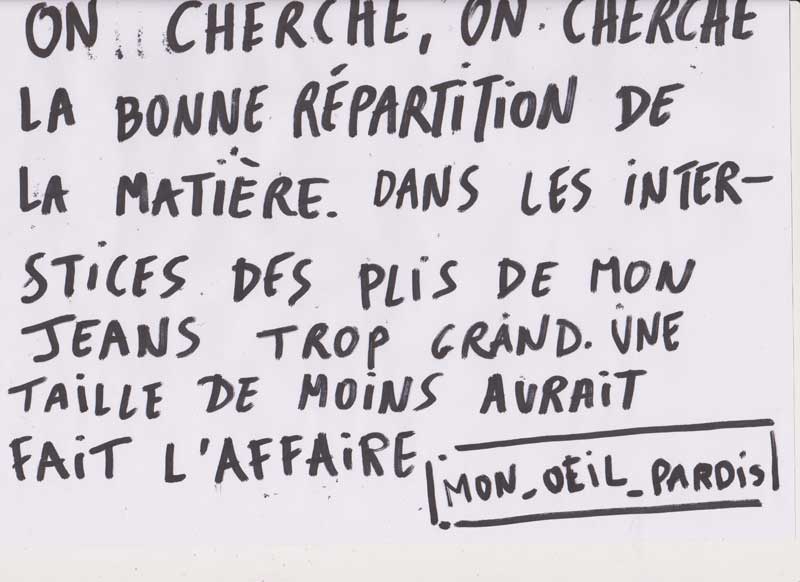 ON CHERCHE, ON CHERCHE
LA BONNE RÉPARTITION DE
LA MATIÈRE. DANS LES INTER-
STICES DES PLIS DE MON
JEANS TROP GRAND. UNE
TAILLE DE MOINS AURAIT
FAIT L'AFFAIRE
MON_OEIL_PARDIS